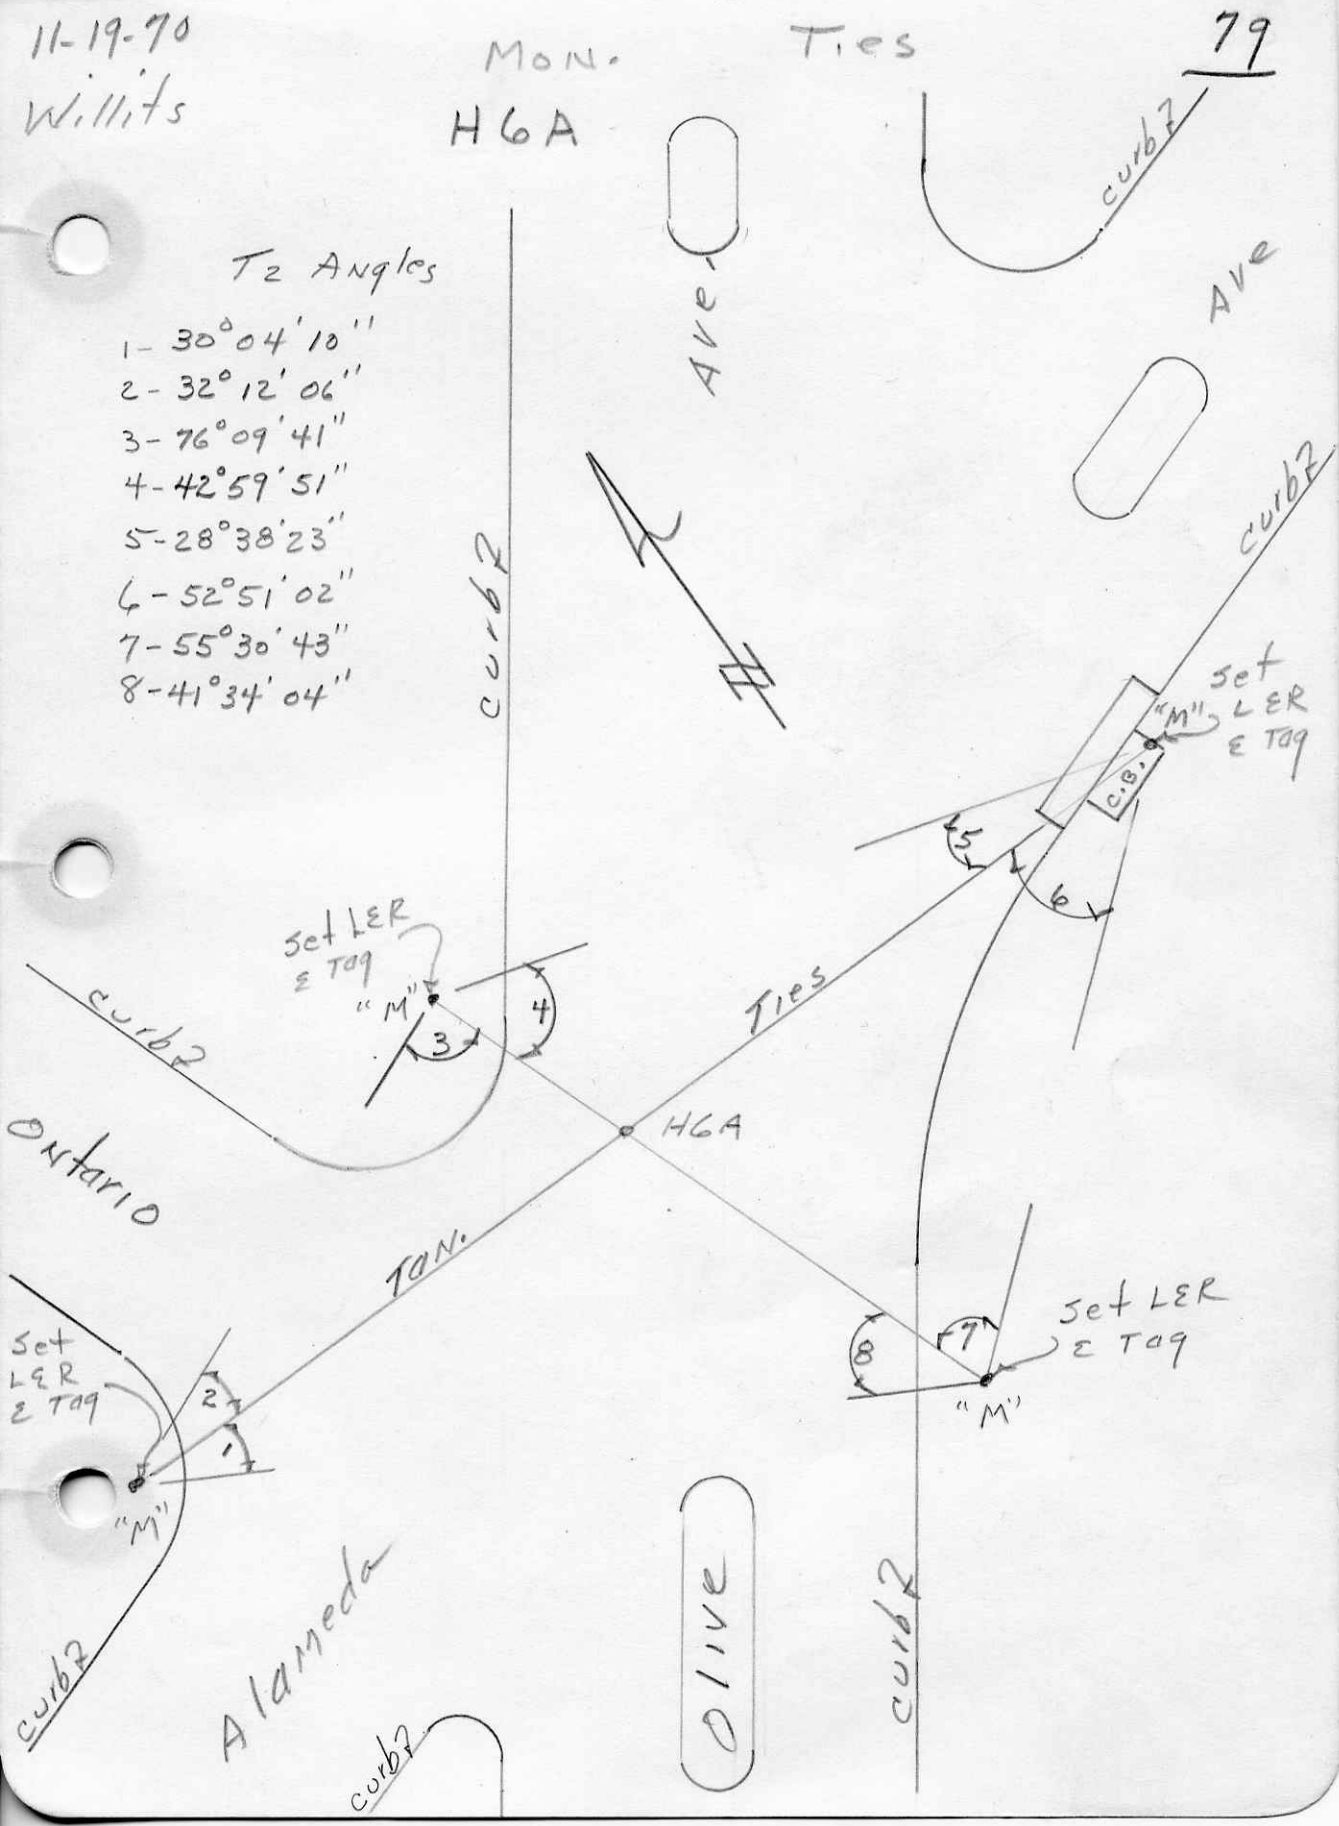 11-19-70
Willits
Mon. Ties
79
H6A
T2 Angles
1- 30°04'10"
2- 32°12'06"
3- 76°09'41"
4- 42°59'51"
5- 28°38'23"
6- 52°51'02"
7- 55°30'43"
8- 41°34'04"
curb
Ave.
curb
Ave
curb
curb
Set
LER
& Tag
"M"
C.B.
5
6
Set LER
& Tag
"M"
3
4
Ties
curb
H6A
Ontario
Tan.
Set
LER
& Tag
2
1
"M"
8
7
Set LER
& Tag
"M"
Alameda
Olive
curb
curb
curb